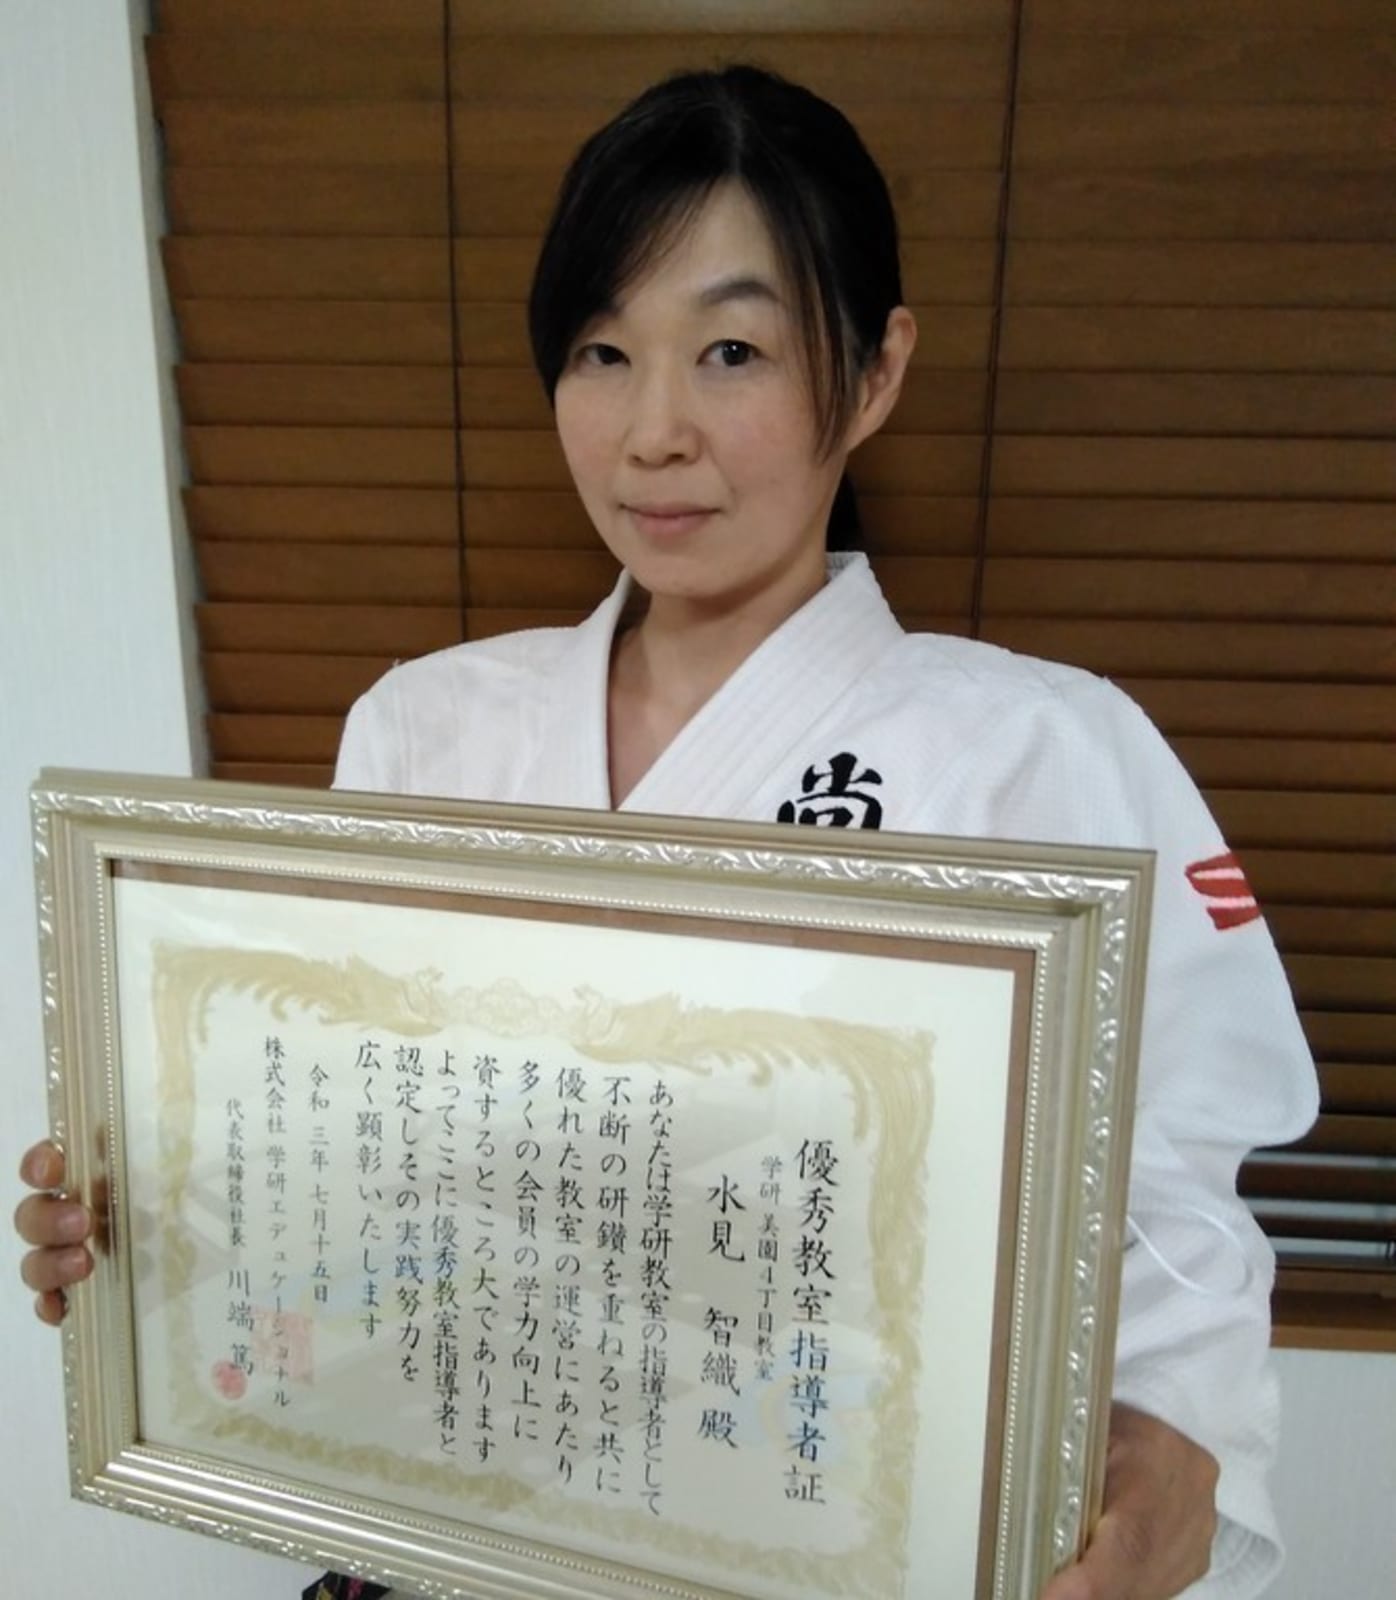 尚
優秀教室指導者証
学研 美園4丁目教室
水見 智織 殿
あなたは学研教室の指導者として
不断の研鑽を重ねると共に
優れた教室の運営にあたり
多くの会員の学力向上に
資するところ大であります
よってここに優秀教室指導者と
認定しその実践努力を
広く顕彰いたします
令和 三年 七月十五日
株式会社 学研エデュケーショナル
代表取締役社長 川端 篤